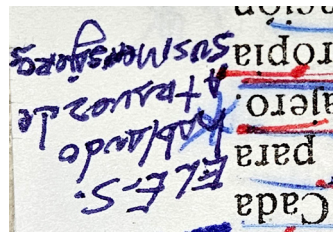 Cada
para
ajero
ropia
ción
EL E.S.
Hablando
Atravoz de
sus Mensajeros